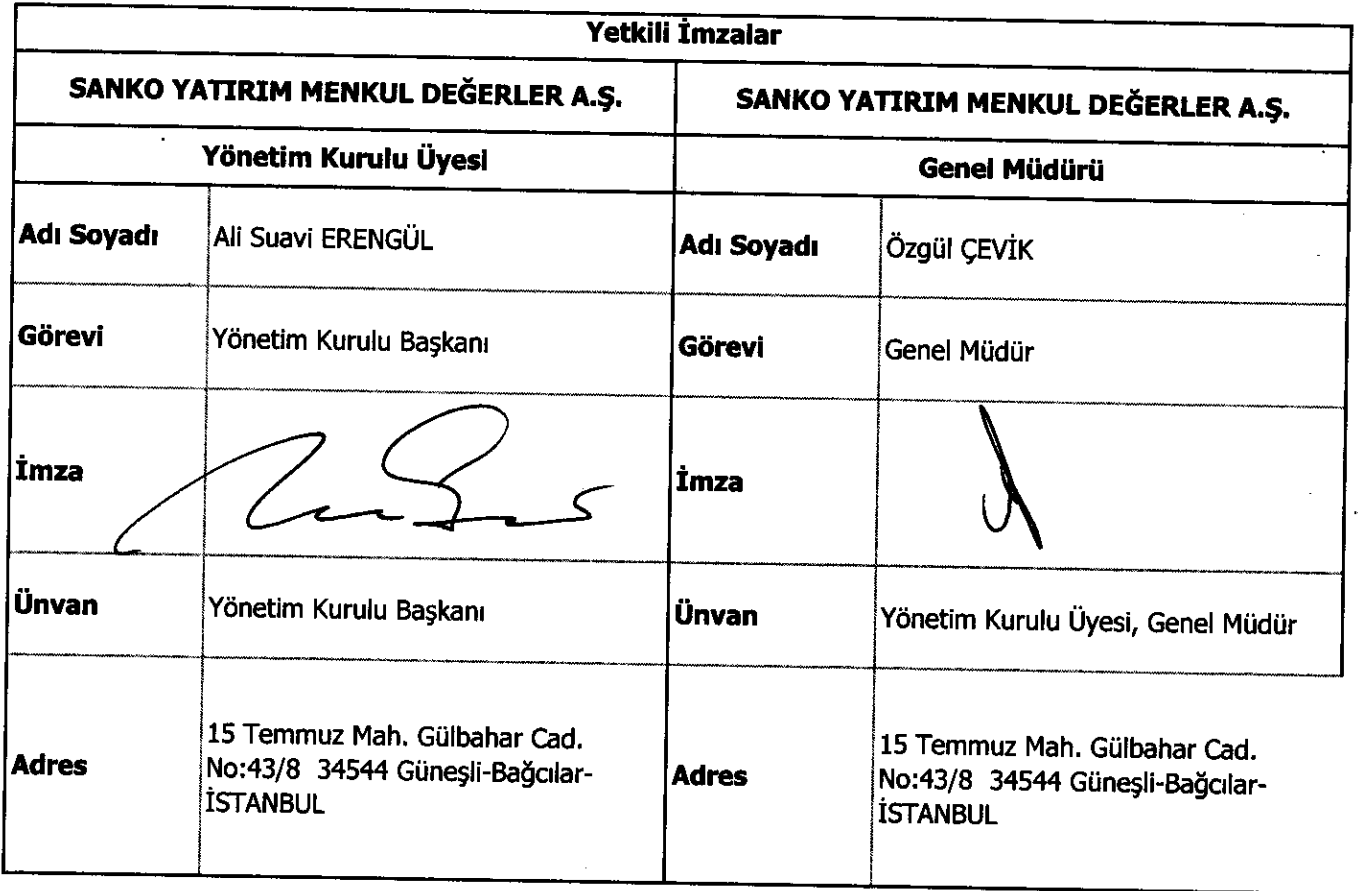 Yetkili İmzalar
SANKO YATIRIM MENKUL DEĞERLER A.Ş.
SANKO YATIRIM MENKUL DEĞERLER A.Ş.
Yönetim Kurulu Üyesi
Genel Müdürü
Adı Soyadı
Ali Suavi ERENGÜL
Adı Soyadı
Özgül ÇEVİK
Görevi
Yönetim Kurulu Başkanı
Görevi
Genel Müdür
İmza
İmza
Ünvan
Yönetim Kurulu Başkanı
Ünvan
Yönetim Kurulu Üyesi, Genel Müdür
Adres
15 Temmuz Mah. Gülbahar Cad.
No:43/8 34544 Güneşli-Bağcılar-
İSTANBUL
Adres
15 Temmuz Mah. Gülbahar Cad.
No:43/8 34544 Güneşli-Bağcılar-
İSTANBUL